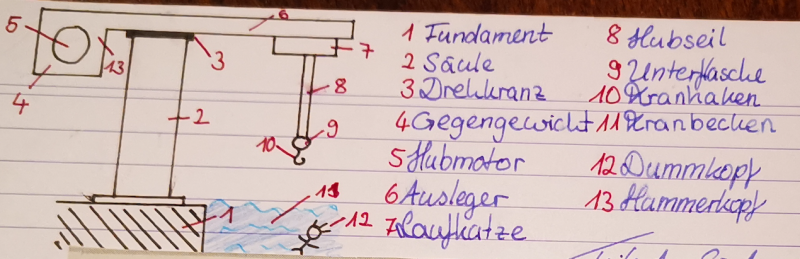 5
6
4
13
3
7
2
8
10
9
1
11
12
1 Fundament
2 Säule
3 Drehkranz
4 Gegengewicht
5 Hubmotor
6 Ausleger
7 Laufkatze
8 Hubseil
9 Unterflasche
10 Kranhaken
11 Kranbecken
12 Dummkopf
13 Hammerkopf